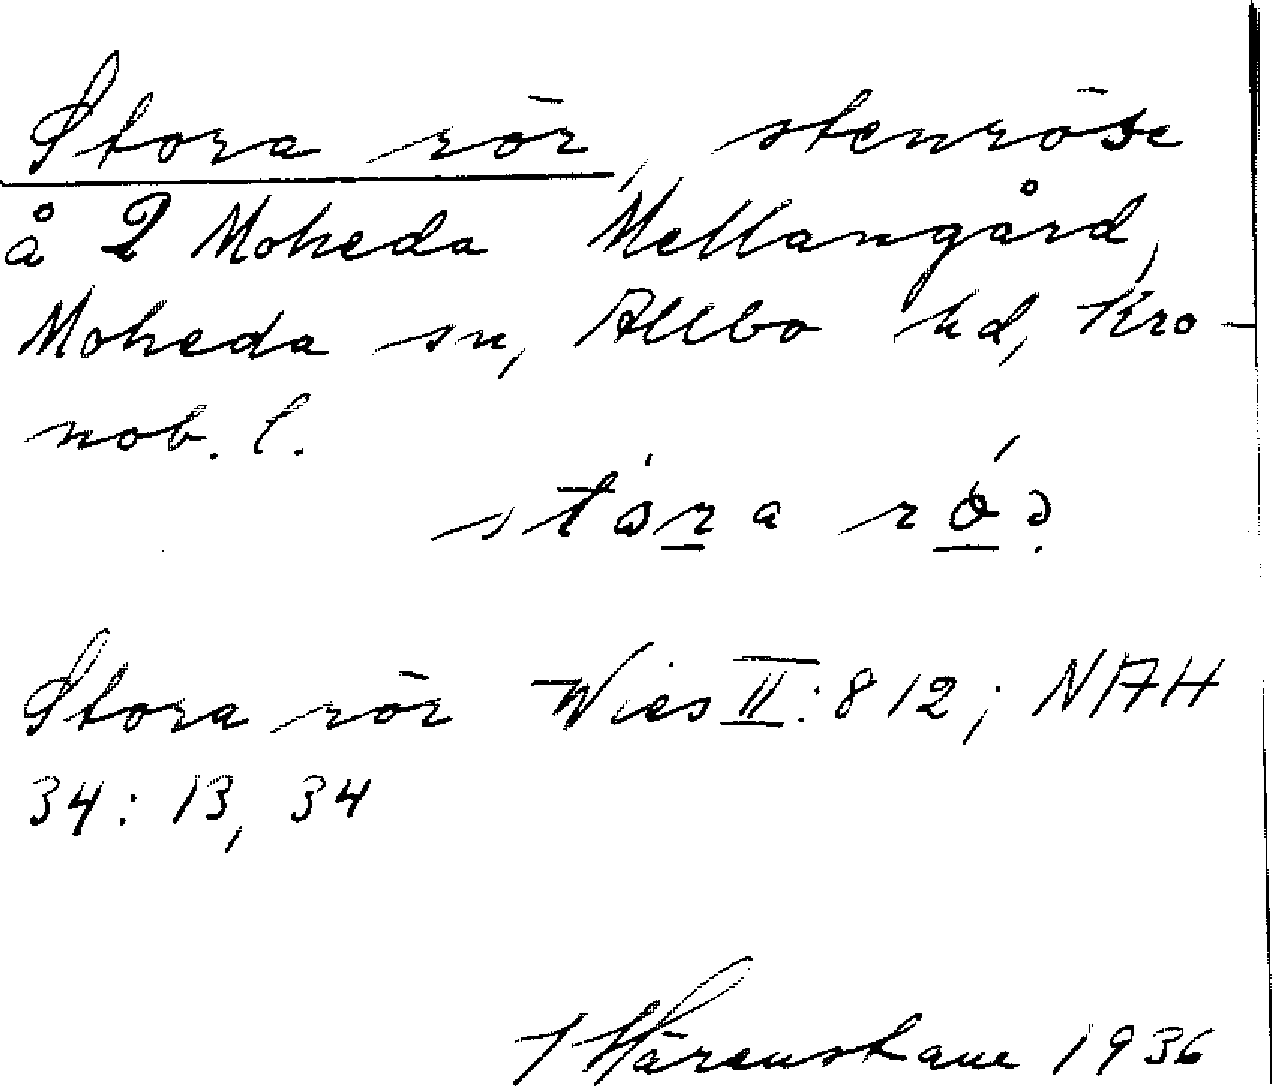 Stora rör, stenröse
å 2 Moheda Mellangård,
Moheda sn, Allbo hd, Kro-
nob. l.
stóra
Stora rör Wies II: 812; NAH
34: 13, 34
1936